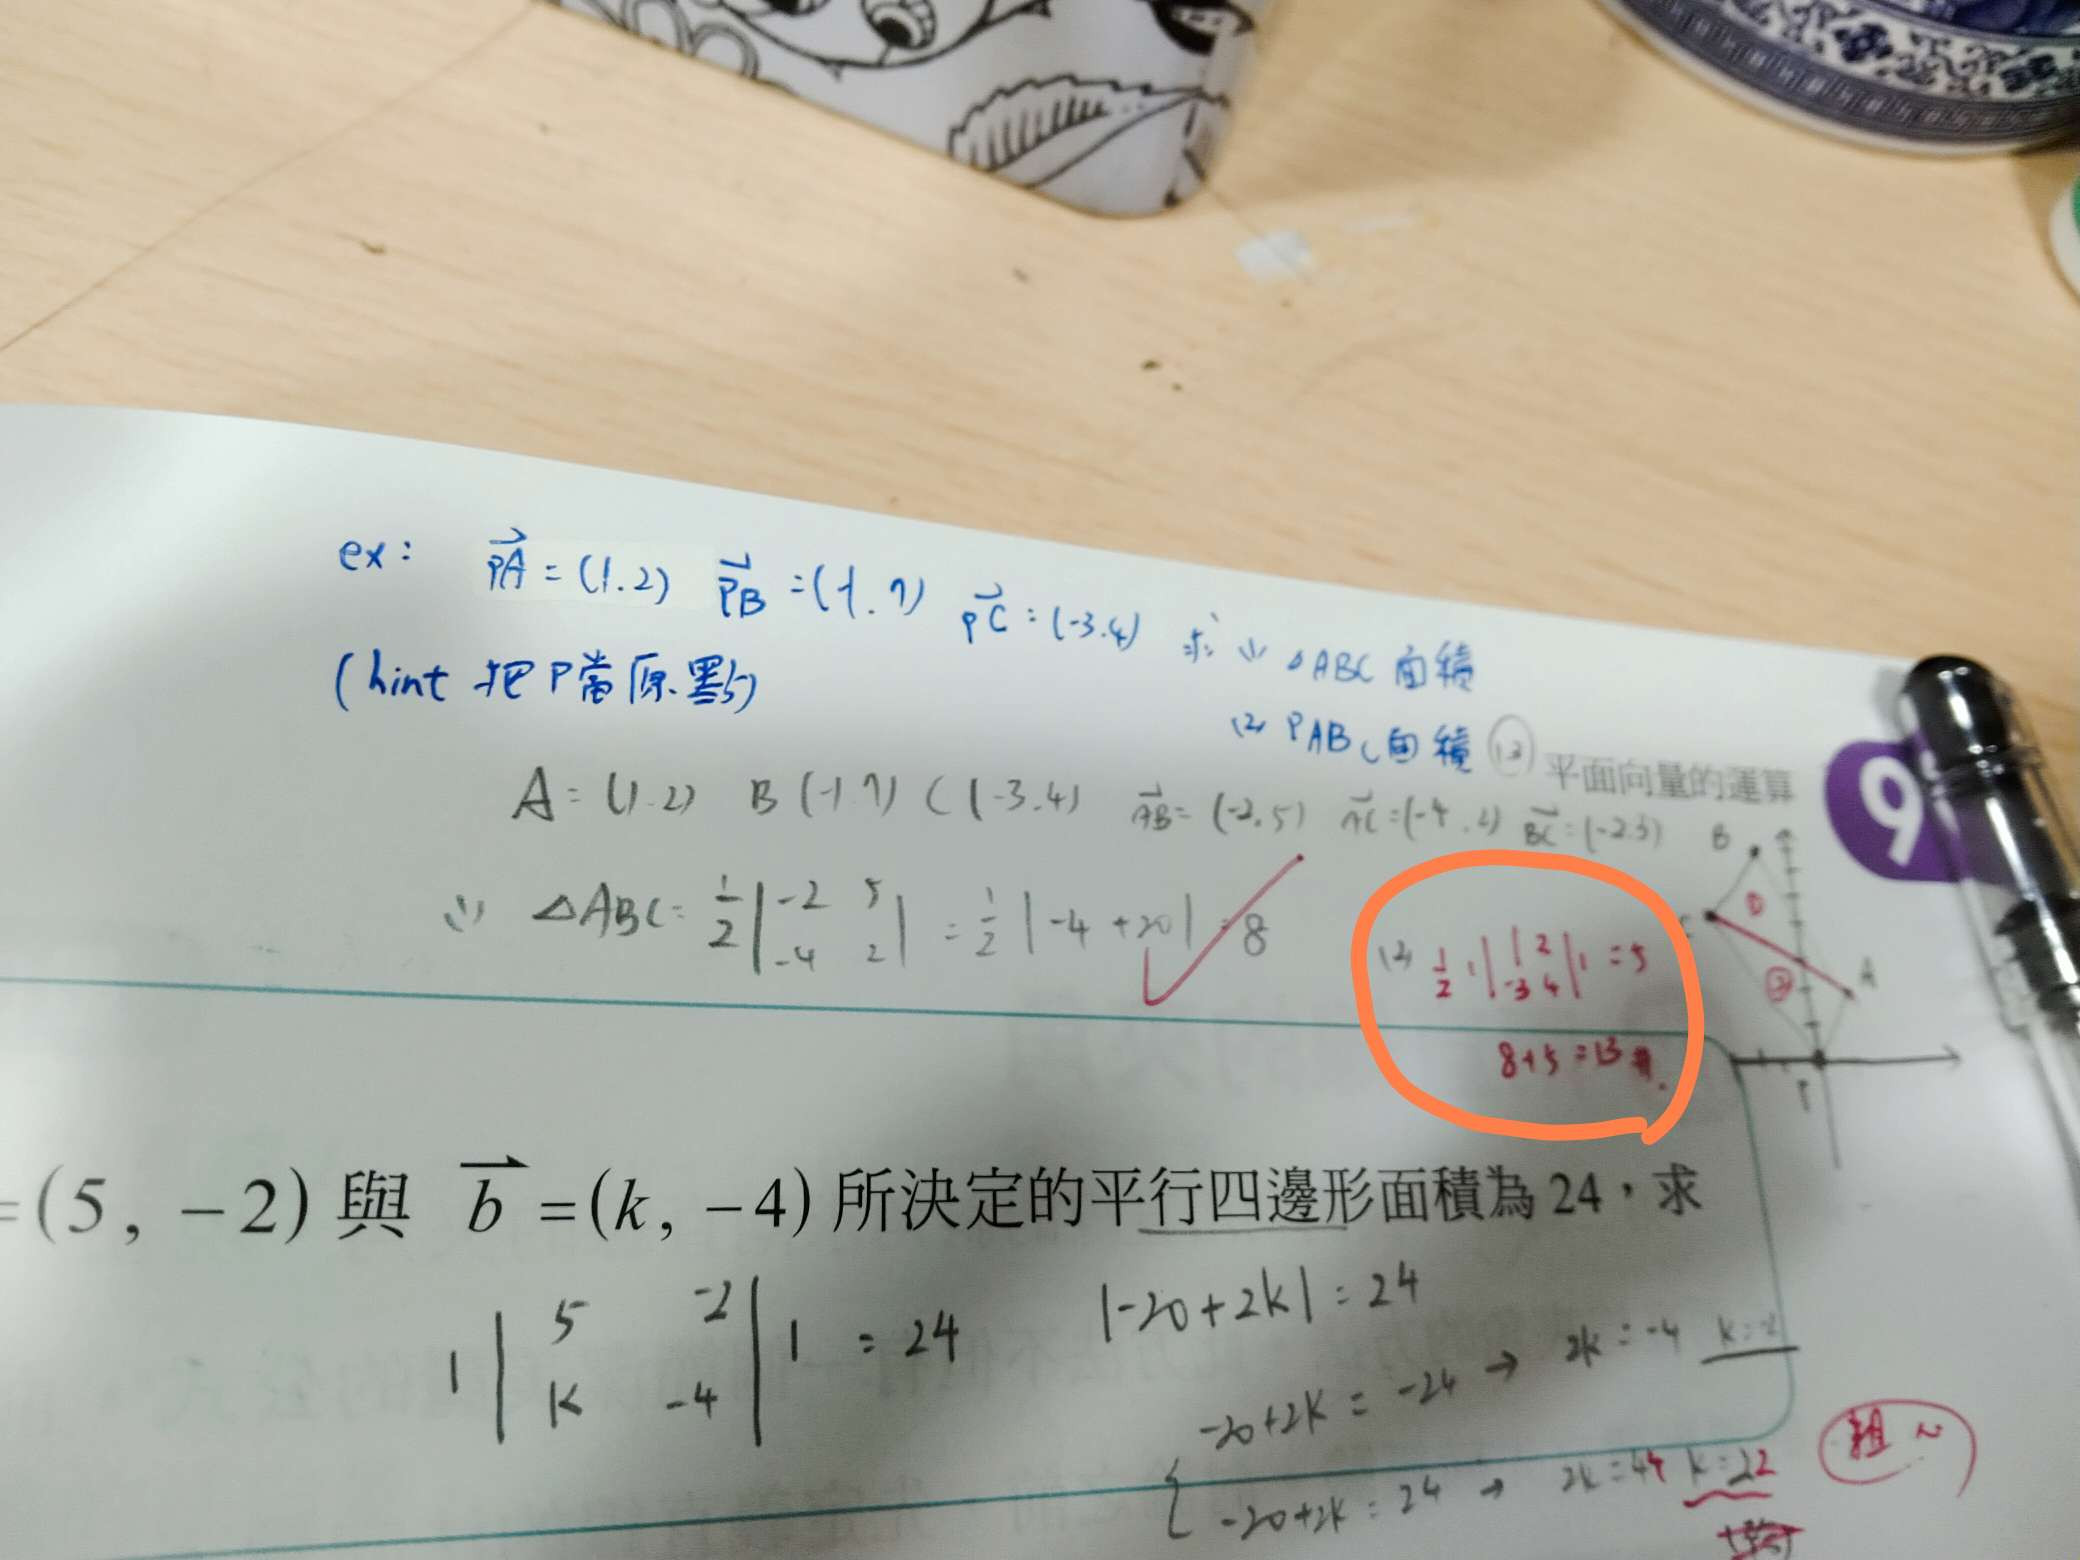 ex: PA = (1.2) PB = (-1.7) PC = (-3.4) 求 (1) △ABC 面積
(hint 把P當原點)
(2) PABC面積
平面向量的運算
9
A = (1.2) B (-1.7) C (-3.4) AB = (-2.5) AC = (-4.2) BC = (-2.3)
(1) △ABC = 1/2 |-2 5 -4 2| = 1/2 |-4 + 20| = 8
(2) 1/2 · | |1 2 -3 4| | = 5
8+5=13
B
C
A
P
① ②
= (5, −2) 與 b = (k, −4) 所決定的平行四邊形面積為 24，求
| |5 -2 K -4| | = 24
|-20+2k| = 24
-20+2k = -24 → 2k = -4 k=-2
-20+2k = 24 → 2k = 44 k=22
粗心